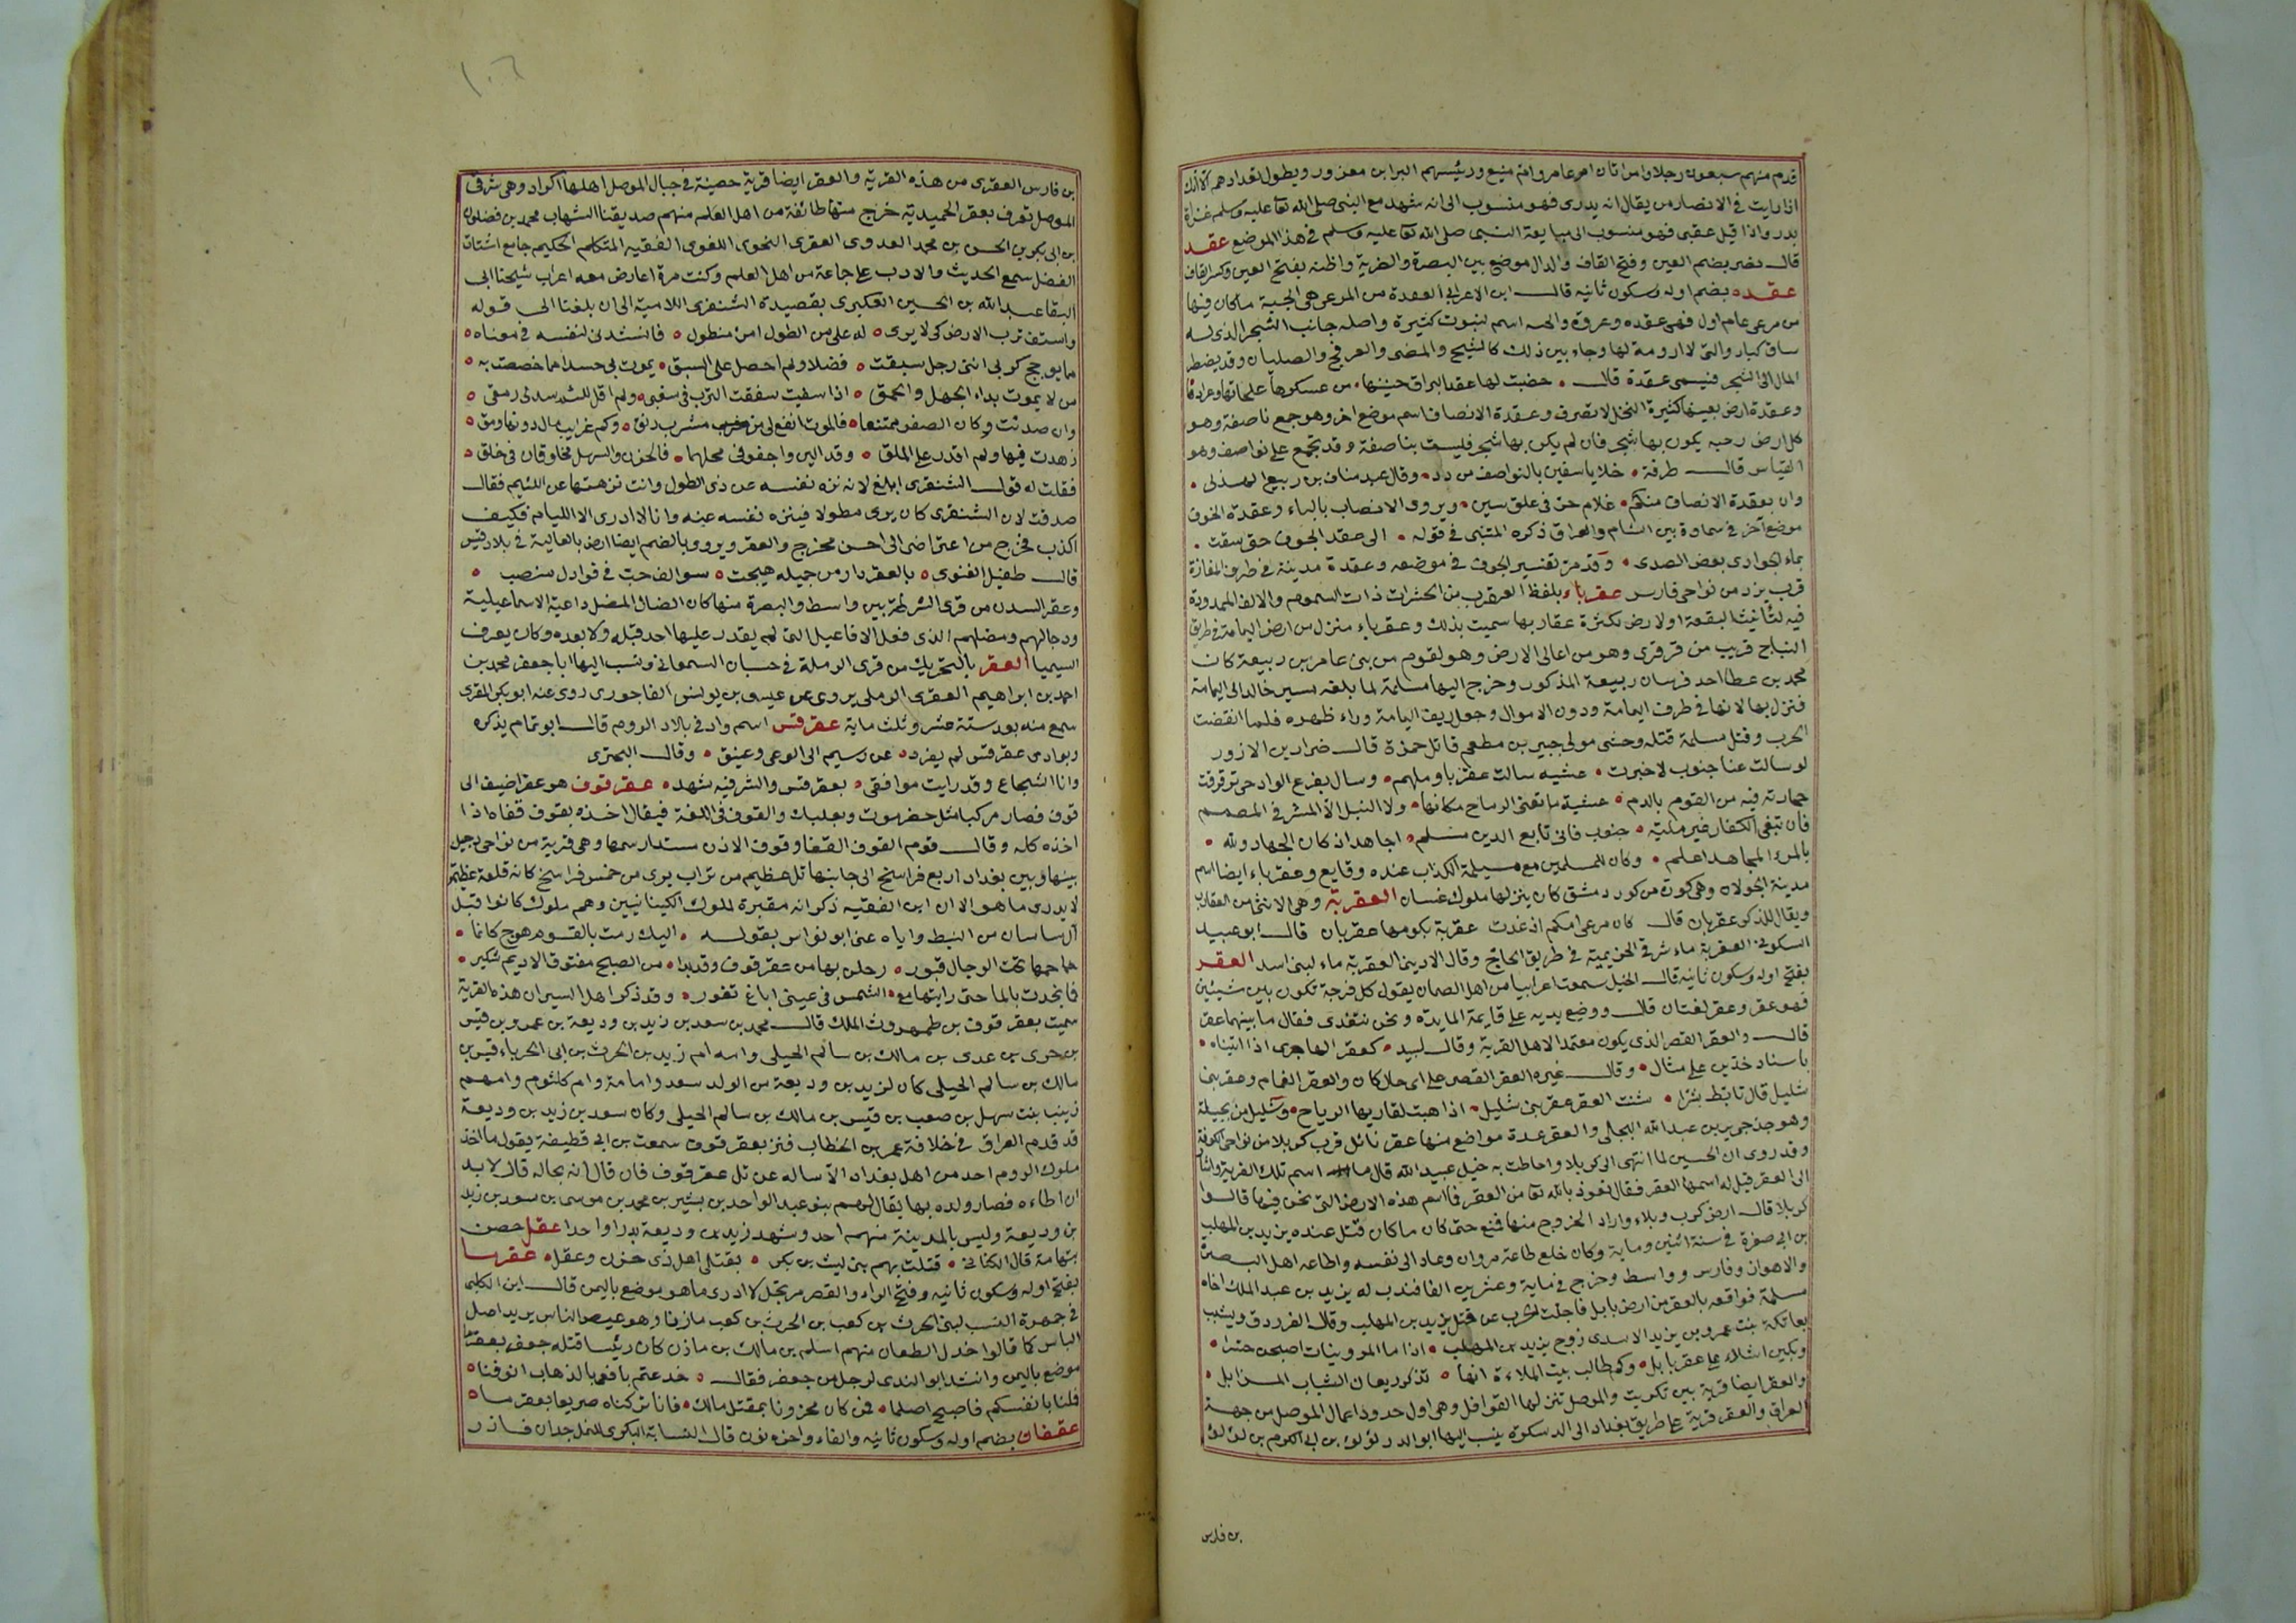 قدم منهم سبعون رجلا وامراتان ام عامر وام منيع ورئيسهم البرا بن معرور ويطول تعدادهم الا انك
اذا رايت في الانصار من يقال انه بدرى فهو منسوب الى انه شهد مع النبى صلى الله تعا عليه وسلم غزاة
بدر واذا قيل عقبى فهو منسوب الى مبايعة النبى صلى الله تعا عليه وسلم في هذا الموضع عقد
قال نصر بضم العين وفتح القاف والدال موضع بين البصرة وضرية واظنه بفتح العين وكسر القاف
عقده بضم اوله وسكون ثانيه قال ابن الاعرابى العقدة من المرعى هى الجنبة ماكان فيها
من مرعى عام اول فهى عقده وعروة
ساق كبار والتى لا ارومة لها وجاء بين ذلك كالشيح والنصى والعرفج والصليان وقد يضطر
المال الى الشجر فيسمى عقدة قال ٠ خضبت لها عقد البراق جبينها ٠ من عسكرها علجانها وعرادها
وعقدة ارض بعينها كثيرة النخل لا تصرف وعقدة الانصاف اسم موضع اخر وهو جمع ناصفة وهو
كل ارض رحبه يكون بها شجر فان لم يكن بها شجر فليست بناصفة وقد تجمع على نواصف وهو
القياس قال طرفة ٠ خلايا سفين بالنواصف من دد ٠ وقال عبد مناف بن ربيع الهذلى ٠
وان بعقدة الانصاف منكم ٠ غلام خر في علق سنين ٠ ويروى الانصاب بالباء وعقدة الجوف
موضع آخر في سماوة بين الشام والعراق ذكره المتنبى في قوله ٠ الى عقد الجوف حتى شفت ٠
بماء الجوارى بعض الصدى ٠ وقد مر تفسير الجوف في موضعه وعقدة مدينة في طرف المفازة
قرب يزد من نواحى فارس عقرباء بلفظ العقرب من الحشرات ذات السموم والالف الممدودة
فيه لتانيث البقعة اولارض لكثرة عقاربها سميت بذلك وعقرباء منزل من ارض اليمامة في طريق
النباج قريب من قرقرى وهو من اعالى الارض وهو لقوم من بنى عامر بن ربيعة كان
محمد بن عطا احد فرسان ربيعة المذكور وخرج اليها مسلمة لما بلغه مسير خالد الى اليمامة
فنزل بها لانها في طرف اليمامة ودون الاموال وجعل ريف اليمامة وراء ظهره فلما انقضت
الحرب وقتل مسلمة قتله وحشى مولى جبير بن مطعم قاتل حمزة قال ضرار بن الازور
لو سالت عنا جنوب لاخبرت ٠ عشيه سالت عقربا وملهم ٠ وسال بفرع الواد حى ترقرقت
حجارته فيه من القوم بالدم ٠ عشية ما تغنى الرماح مكانها ٠ ولا النبل الا المشرفى المصمم
فان تبتغى الكفار غير مليّة ٠ جنوب فانى تابع الدين مسلم ٠ اجاهد اذ كان الجهاد ولله ٠
بالمرء المجاهد اعلم ٠ وكان للمسلمين مع مسيلمة الكذاب عنده وقايع وعقرباء ايضا اسم
مدينة الجولان وهى كورة من كور دمشق كان ينزلها ملوك غسان العقربة وهى الانثى من العقارب
ويقال للذكر عقربان قال كان مرعى امكم اذ غدت عقربة يكومها عقربان قال ابو عبيد
السكونى العقربة ماء شرقى الخزيمية في طريق الحاج وقال الاديبى العقربة ماء لبنى اسد العقر
بفتح اوله وسكون ثانيه قال الخليل سمعت اعرابيا من اهل الصمان يقول كل فرجة تكون بين شيئين
فهو عقر وعقر لغتان قال ووضع يديه على قايمة المايدة ونحن نتغدى فقال ما بينهما عقر
قال والعقر القصر الذى يكون معتمدا لاهل القرية وقال لبيد ٠ كعقر الهاجرى اذا ابتناه ٠
باسناد خذين على مثال ٠ وقال غيره العقر القصر على اى حال كان والعقر الغمام وعقر بنى
شليل قال تابط شرا ٠ شنت العقر عقر بنى شليل ٠ اذا هبت لقاريها الرياح ٠ وشليل من بجيلة
وهو جد جرير بن عبد الله البجلى والعقر عدة مواضع منها عقر بابل قرب كربلا من نواحى الكوفة
وقد روى ان الحسين لما انتهى الى كربلا واحاطت به خيل عبيد الله قال ما اسم تلك القرية واشار
الى العقر قيل له اسمها العقر فقال نعوذ بالله تعا من العقر فما اسم هذه الارض التى نحن فيها قالوا
كربلا قال ارض كرب وبلاء واراد الخروج منها فمنع حتى كان ما كان قتل عنده يزيد بن المهلب
بن ابى صفرة في سنة اثنين وماية وكان خلع طاعة مروان وعاد الى نفسه واطاعه اهل البصرة
والاهواز وفارس وواسط وخرج في ماية وعشرين الفا فندب له يزيد بن عبد الملك اخاه
مسلمة فواقعه بالعقر من ارض بابل فاجلت الحرب عن قتل يزيد بن المهلب وقال الفرزدق ويشبب
بعاتكة بنت عمرو بن يزيد الاسدى زوج يزيد بن المهلب ٠ اذا ما المزونيات اصبحن حسرا ٠
وبكين اشلاء على عقر بابل ٠ وكم طالب بيت الملاءة انها ٠ تذكر ريعان الشباب المزايل ٠
والعقر ايضا قرية بين تكريت والموصل تنزلها القوافل وهى اول حدود اعمال الموصل من جهة
العراق والعقر قرية على طريق بغداد الى الدسكرة ينسب اليها ابو الدر لؤلؤ بن ابى الكرم بن لؤلؤ
بن فارس
١٠٦
بن فارس العقرى من هذه القرية والعقر ايضا قرية حصينة في جبال الموصل اهلها اكراد وهى شرقى
الموصل تعرف بعقر الحميدية خرج منها طائفة من اهل العلم منهم صديقنا الشهاب محمد بن فضلون
بن ابى بكر بن الحسن بن محمد العدوى العقرى النحوى اللغوى الفقيه المتكلم الحكيم جامع اشتات
الفضل سمع الحديث والادب على جاعة من اهل العلم وكنت مرة اعارض معه اعراب شيخنا ابى
البقا عبد الله بن الحسين العكبرى بقصيدة الشنفرى اللامية الى ان بلغنا الى قوله
واستف ترب الارض كى لا يرى ٠ له على من الطول امرئ متطول ٠ فانشدنى لنفسه في معناه ٠
مما يوجج كربى انى رجل سبقت ٠ فضلا ولم احصل على السبق ٠ يموت بى حسدا مما خصصت به ٠
من لا يموت بداء الجهل والحمق ٠ اذا سغبت سففت الترب في سغبى ٠ ولم اقل للئيم سد لى رمقى ٠
وان صديت وكان الصفو ممتنعا ٠ فالموت انفع لى من مشرب رنق ٠ وكم غرايب مال دونها رمق ٠
زهدت فيها ولم اقدر على الملق ٠ وقد الين واجفو فى محلهما ٠ فالحزن والسهل مخلوقان فى خلقى ٠
فقلت له قول الشنفرى ابلغ لانه نزه نفسه عن ذى الطول وانت نزهتها عن اللئيم فقال
صدقت لان الشنفرى كان يرى متطولا فينزه نفسه عنه وانا لا ادرى الا الليام فكيف
اكذب فخرج من اعتراضى الى احسن مخرج والعقر ويروو بالضم ايضا ارض بالعالية في بلاد قيس
قال طفيل الغنوى ٠ بالعقر دار من جميله هيجت ٠ سوالف حب في فوادك منصب ٠
وعقر السدن من قرى الشرطة بين واسط والبصرة منها كان الضال المضل داعية الاسماعيلية
ودجالهم ومضلهم الذى فعل الافاعيل التى لم يقدر عليها احد قبله ولا بعده وكان يعرف
السيميا العقر بالتحريك من قرى الرملة في حسبان السمعانى ونسب اليها ابا جعفر محمد بن
احمد بن ابراهيم العقرى الرملى يروى عن عيسى بن يونس الفاخورى روى عنه ابو بكر المقرى
سمع منه بعد ستة عشر وثلث ماية عقرقس اسم واد في بلاد الروم قال ابو تمام يذكره
وبوادى عقرقس لم يفرد ٠ عن رسيم الى الوغى وعنيق ٠ وقال البحترى
وانا الشجاع وقد رايت مواقفى ٠ بعقرقس والمشرفيه شهد ٠ عقرقوف هو عقر اضيف الى
قوف فصار مركبا مثل حضرموت وبعلبك والقوف فى اللغة فيقال اخذه بقوف قفاه اذا
اخذه كله وقال قوم القوف القفا وقوف الاذن مستدار سمها وهى قرية من نواحى دجيل
بينها وبين بغداد اربع فراسخ الى جانبها تل عظيم من تراب يرى من خمس فراسخ كانه قلعة عظيمة
لا يدرى ما هو الا ان ابن الفقيه ذكر انه مقبرة لملوك الكينانيين وهم ملوك كانوا قبل
آل ساسان من النبط واياه عنى ابو نواس بقوله ٠ اليك رمت بالقوم هوج كانما ٠
جماجمها تحت الرحال قبور ٠ رحلن بها من عقرقوف وقد بدا ٠ من الصبح مفتوق الاديم شكير ٠
فما نجدت بالما حتى رايتها ٠ مع الشمس فى عينى اباغ تغور ٠ وقد ذكر اهل السير ان هذه القرية
سميت بعقرقوف بن طهمورث الملك قال محمد بن سعد بن زيد بن وديعة بن عمرو بن قيس
بن جزى بن عدى بن مالك بن سالم الحبلى وامه ام زيد بن الحرث بن ابى الجرباء قيس بن
مالك بن سالم الحبلى كان لزيد بن وديعة من الولد سعد وامامة وام كلثوم وامهم
زينب بنت سهل بن صعب بن قيس بن مالك بن سالم الحبلى وكان سعد بن زيد بن وديعة
قد قدم العراق في خلافة عمر بن الخطاب فنزل بعقرقوف سمعت بن ابى قطيفة يقول ما اخذ
ملوك الروم احد من اهل بغداد الا ساله عن تل عقرقوف فان قال انه بحاله قال لا بد
ان اطاءه فصار ولده بها يقال لهم بنو عبد الواحد بن بشير بن محمد بن موسى بن سعد بن زيد
بن وديعة وليس بالمدينة منهم احد وشهد زيد بن وديعة بدرا واحدا عقل حصن
بتهامة قال الكنانى ٠ قتلت بهم بنى ليث بن بكر ٠ بقتلى اهل ذى حزن وعقل ٠ عقرما
بفتح اوله وسكون ثانيه وفتح الراء والقصر مرتجل لا ادرى ما هو موضع باليمن قال ابن الكلبى
في جمهرة النسب لبنى الحرث بن كعب بن الحرث بن كعب مازنا وهو عيص الناس يريد اصل
الباس كما قالوا خدل الطعان منهم اسلم بن مالك بن مازن كان رئيسا قتله جعفى بعقرما
موضع باليمن وانشد ابو الندى لرجل من جعفر فقال ٠ خدعتم بافعيا لذهاب انوفنا ٠
فملنا بانفسكم فاصبح اصلما ٠ فمن كان محزونا بمقتل مالك ٠ فانا تركناه صريعا بعقرما ٠
عقفان بضم اوله وسكون ثانيه والفاء واخره نون قال النسابة البكرى للنمل جدان فازر